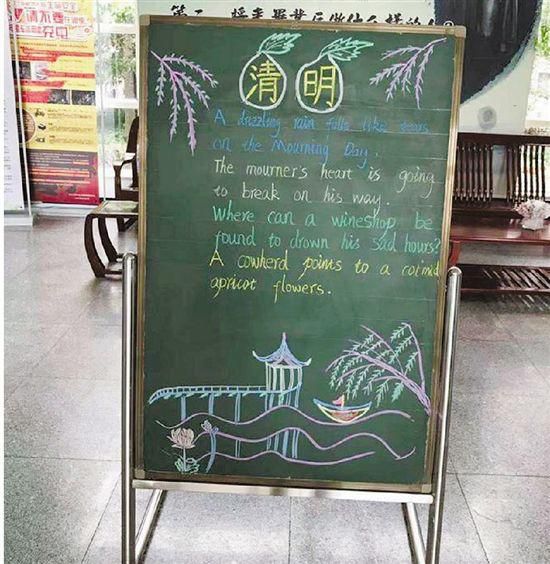 第二 将来毕业后做什么样的人
清明
A dazzling rain falls like tears
on the Mourning Day.
The mourner's heart is going
to break on his way.
Where can a wineshop be
found to drown his sad hours?
A cowherd points to a cot'mid
apricot flowers.